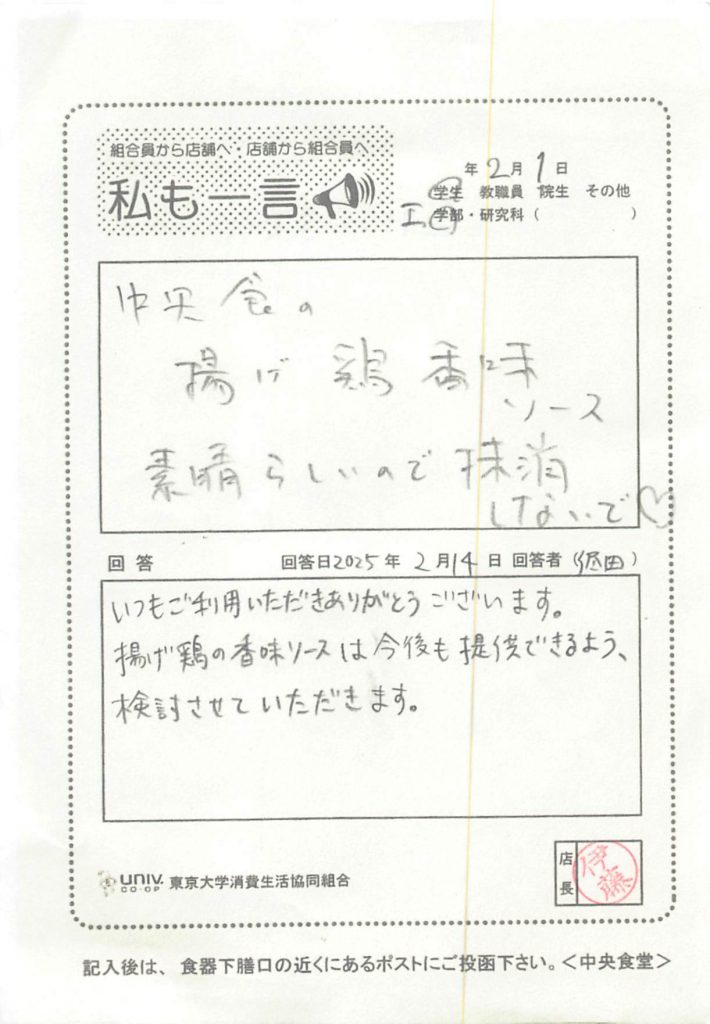 組合員から店舗へ・店舗から組合員へ
私も一言
年 2月 1日
学生 教職員 院生 その他
工 学部・研究科 ( )
中央食の
揚げ鶏香味
ソース
素晴らしいので抹消
しないで♡
回答 回答日2025年 2月14日 回答者( )
いつもご利用いただきありがとうございます。
揚げ鶏の香味ソースは今後も提供できるよう、
検討させていただきます。
UNIV. CO-OP 東京大学消費生活協同組合
店長 伊藤
記入後は、食器下膳口の近くにあるポストにご投函下さい。<中央食堂>